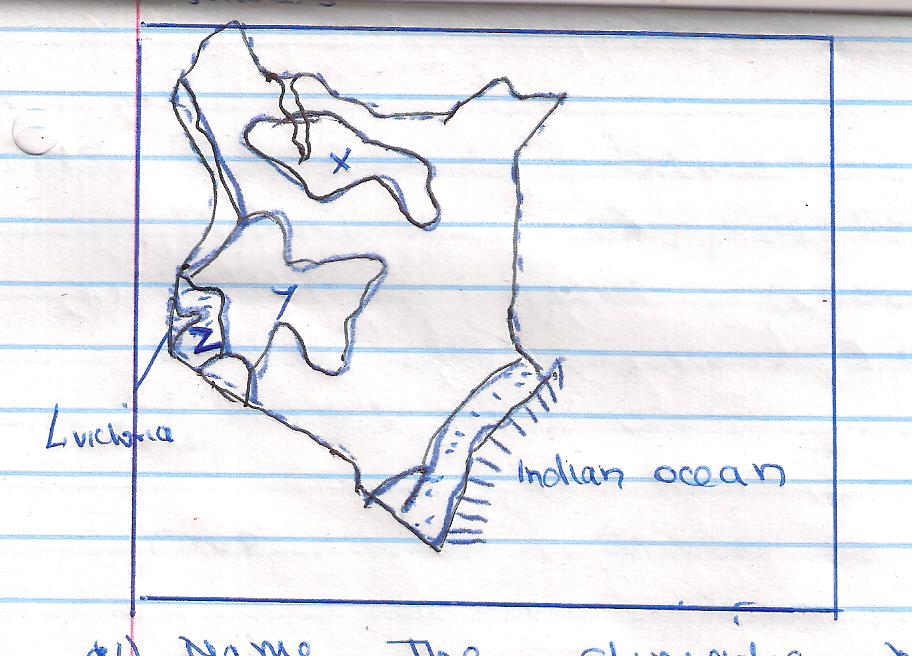 X
Y
Z
L victoria
Indian ocean
Name The